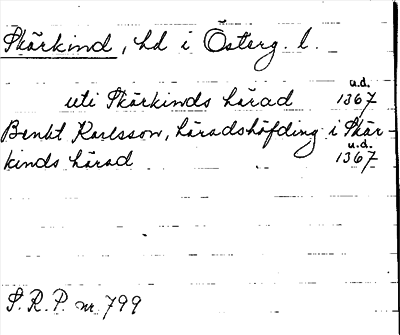 Skärkind, hd i Österg. l.
uti Skärkinds härad u.d. 1367
Benkt Karlsson, häradshöfding i Skär-
kinds härad u.d. 1367
S. R. P. nr 799